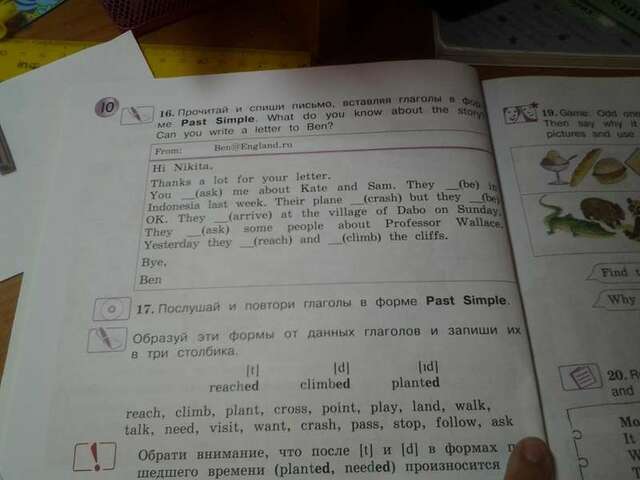 10
16. Прочитай и спиши письмо, вставляя глаголы в фор-
ме Past Simple. What do you know about the story?
Can you write a letter to Ben?
From: Ben@England.ru
Hi Nikita,
Thanks a lot for your letter.
You __(ask) me about Kate and Sam. They __(be) in
Indonesia last week. Their plane __(crash) but they __(be)
OK. They __(arrive) at the village of Dabo on Sunday.
They __(ask) some people about Professor Wallace.
Yesterday they __(reach) and __(climb) the cliffs.
Bye,
Ben
17. Послушай и повтори глаголы в форме Past Simple.
Образуй эти формы от данных глаголов и запиши их
в три столбика.
[t] [d] [ɪd]
reached climbed planted
reach, climb, plant, cross, point, play, land, walk,
talk, need, visit, want, crash, pass, stop, follow, ask
! Обрати внимание, что после [t] и [d] в формах
шедшего времени (planted, needed) произносится
19. Game: Odd one
Then say why it
pictures and use
Find
Why
20.
and
It